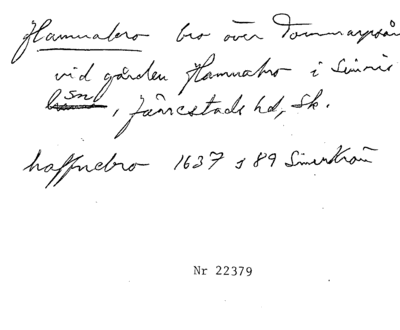 Hamnabro bro över Tommarpsån
vid gården Hamnabro i Simris
sn, Järrestads hd, Sk.
haffnebro 1637 s 89
Nr 22379